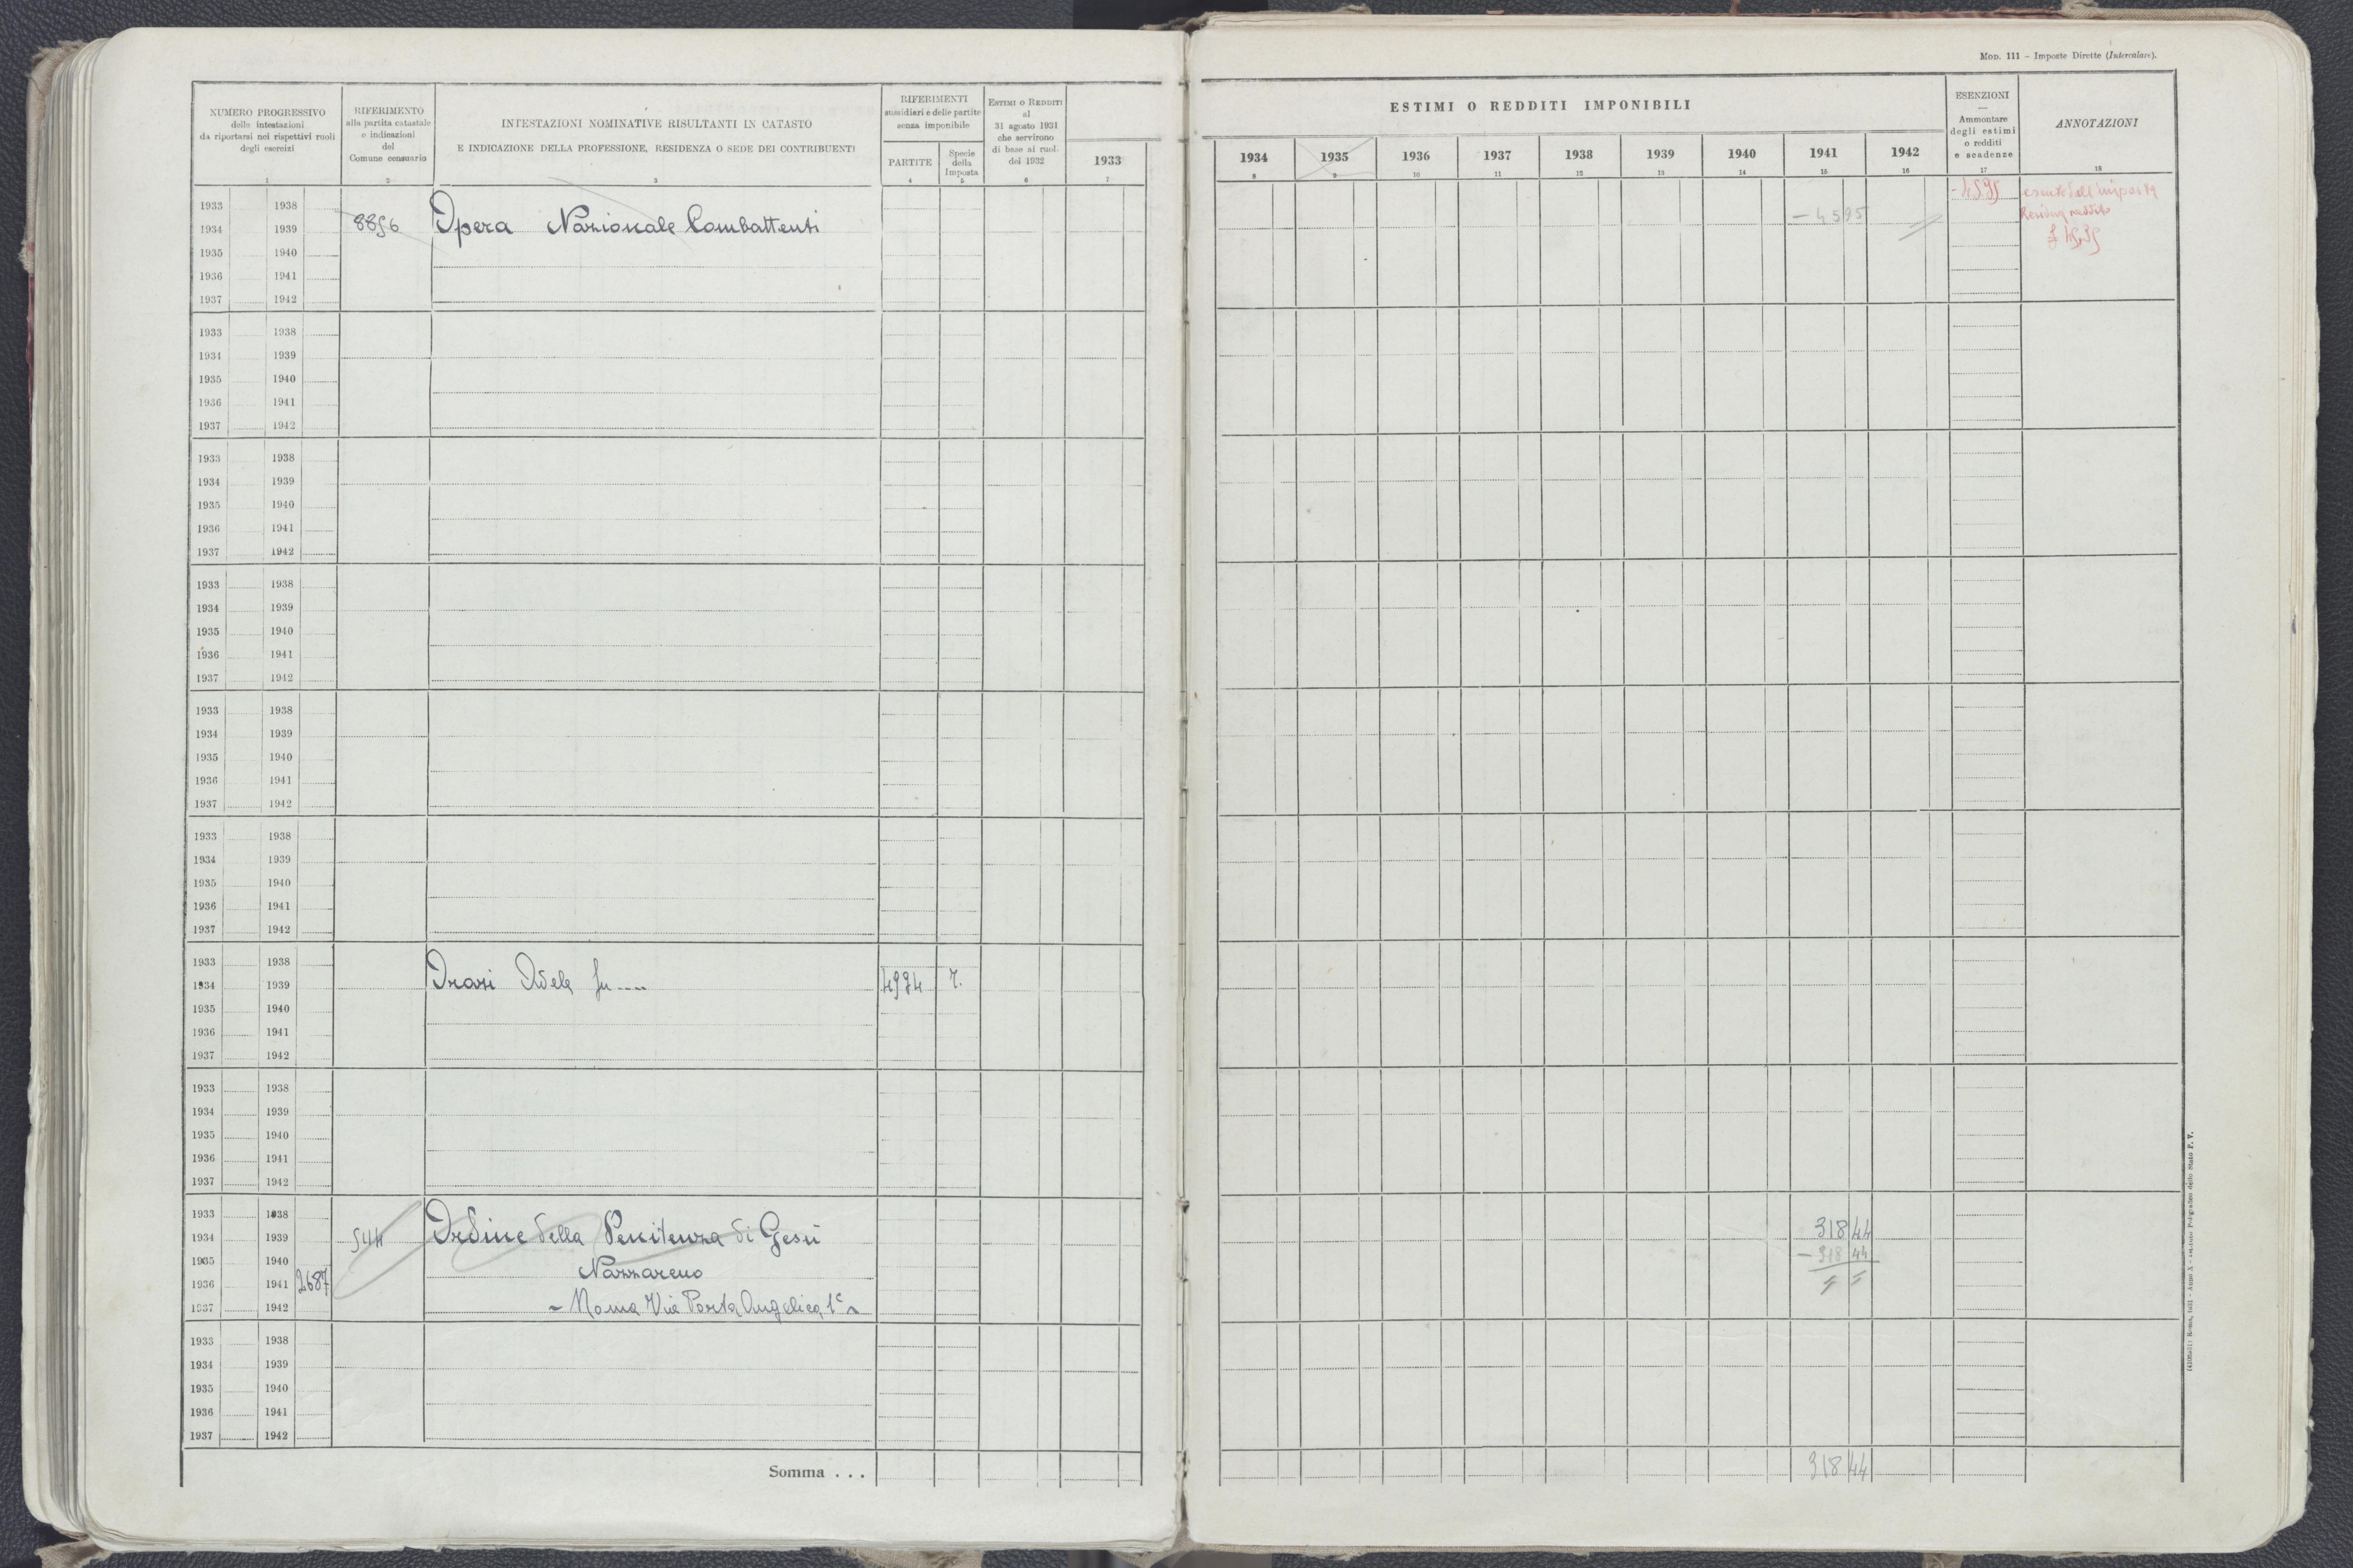 NUMERO PROGRESSIVO
delle intestazioni
da riportarsi nei rispettivi ruoli
degli esercizi
1
RIFERIMENTO
alla partita catastale
o indicazioni
del
Comune censuario
2
INTESTAZIONI NOMINATIVE RISULTANTI IN CATASTO
E INDICAZIONE DELLA PROFESSIONE, RESIDENZA O SEDE DEI CONTRIBUENTI
3
RIFERIMENTI
sussidiari e delle partite
senza imponibile
PARTITE
4
Specie
della
Imposta
5
ESTIMI O REDDITI
al
31 agosto 1931
che servirono
di base ai ruol.
del 1932
6
1933
7
1933 1938
1934 1939 8856 Opera Nazionale Combattenti
1935 1940
1936 1941
1937 1942
1933 1938
1934 1939
1935 1940
1936 1941
1937 1942
1933 1938
1934 1939
1935 1940
1936 1941
1937 1942
1933 1938
1934 1939
1935 1940
1936 1941
1937 1942
1933 1938
1934 1939
1935 1940
1936 1941
1937 1942
1933 1938
1934 1939
1935 1940
1936 1941
1937 1942
1933 1938
1934 1939 Orazi Adele fu ---- 4974 r.
1935 1940
1936 1941
1937 1942
1933 1938
1934 1939
1935 1940
1936 1941
1937 1942
1933 1938
1934 1939 544 Ordine della Penitenza di Gesù
1935 1940
1936 1941 2687 Nazzareno
1937 1942 - Roma Via Porta Angelica 1
1933 1938
1934 1939
1935 1940
1936 1941
1937 1942
Somma . . .
MOD. 111 - Imposte Dirette (Intercalare).
ESTIMI O REDDITI IMPONIBILI
1934 1935 1936 1937 1938 1939 1940 1941 1942
8 9 10 11 12 13 14 15 16
ESENZIONI
—
Ammontare
degli estimi
o redditi
e scadenze
17
ANNOTAZIONI
18
- 4595
- 4595
esente dall'imposta
Residuo reddito
318 44
- 318 44
318 44